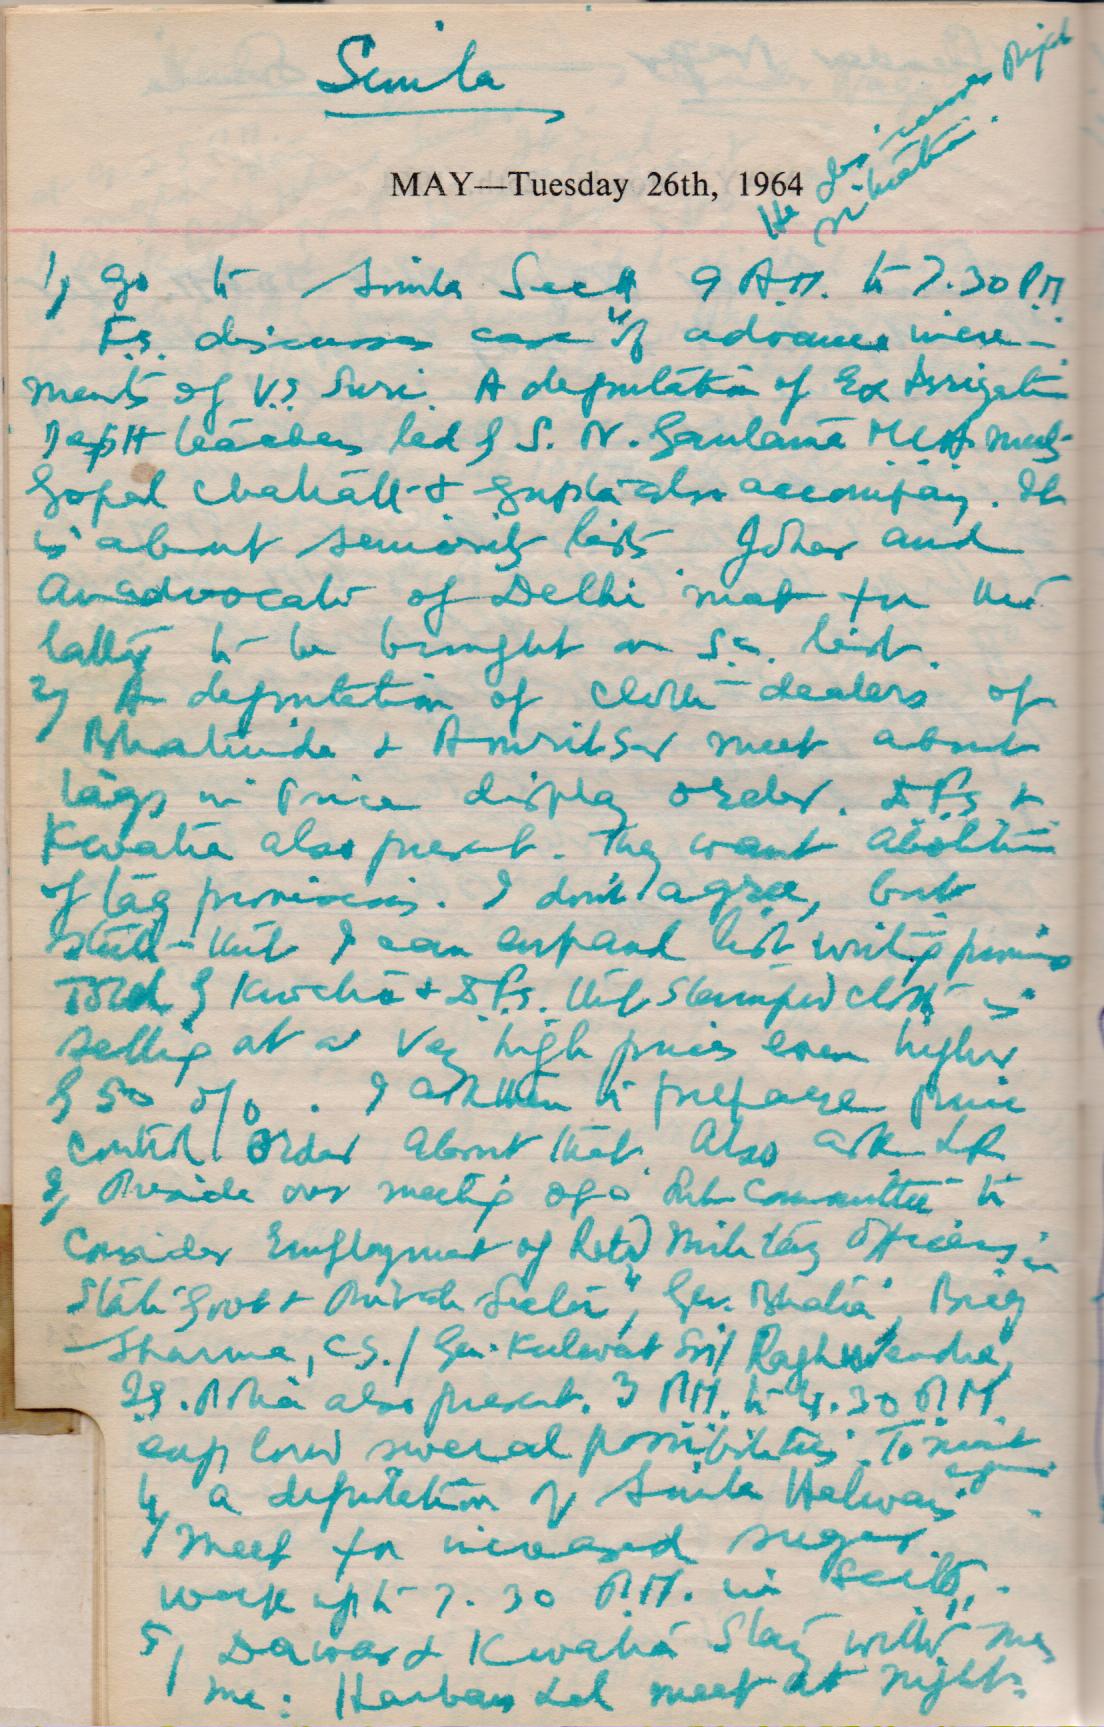 Simla
MAY—Tuesday 26th, 1964
He discusses Night situation.
1) go to Simla Sectt 9 A.M. to 7.30 P.M.
F.S. discusses case of advance incre-
ments of V.S Suri. A deputation of Ex Irrigation
Deptt teachers led by S. N. Gautama MLA meets
Gopal & Gupta also accompany. It
is about seniority lists Johar and
an advocate of Delhi meet for the
latter to be brought on S.C. list.
2) A deputation of cloth dealers of
Bhatinda & Amritsar meet about
tags in Price display order. D.F.S &
Kwatra also present. They want abolition
of tag provisions. I don't agree, but
state that I can expand list writing
Told by & D.F.S. that stamped cloth is
selling at a very high prices even higher
by 50 %. I ask them to prepare price
control order about that. Also ask LR
3) Preside over meeting of a Sub Committee to
consider Employment of Retd Military Officers in
State Govt & Private Sector, Gen. Bhatia, Brig
Sharma, C.S./ Gen. Kulwant Sri/ Raghvendra,
I.S. also present. 3 P.M. to 4.30 P.M.
explored several possibilities. To meet again
4) a deputation of Simla Halwais
meet for increased sugar.
work up to 7.30 P.M. in Sectt.
5) Dawar & Kwatra Stay with
me: Harbans Lal meet at night.